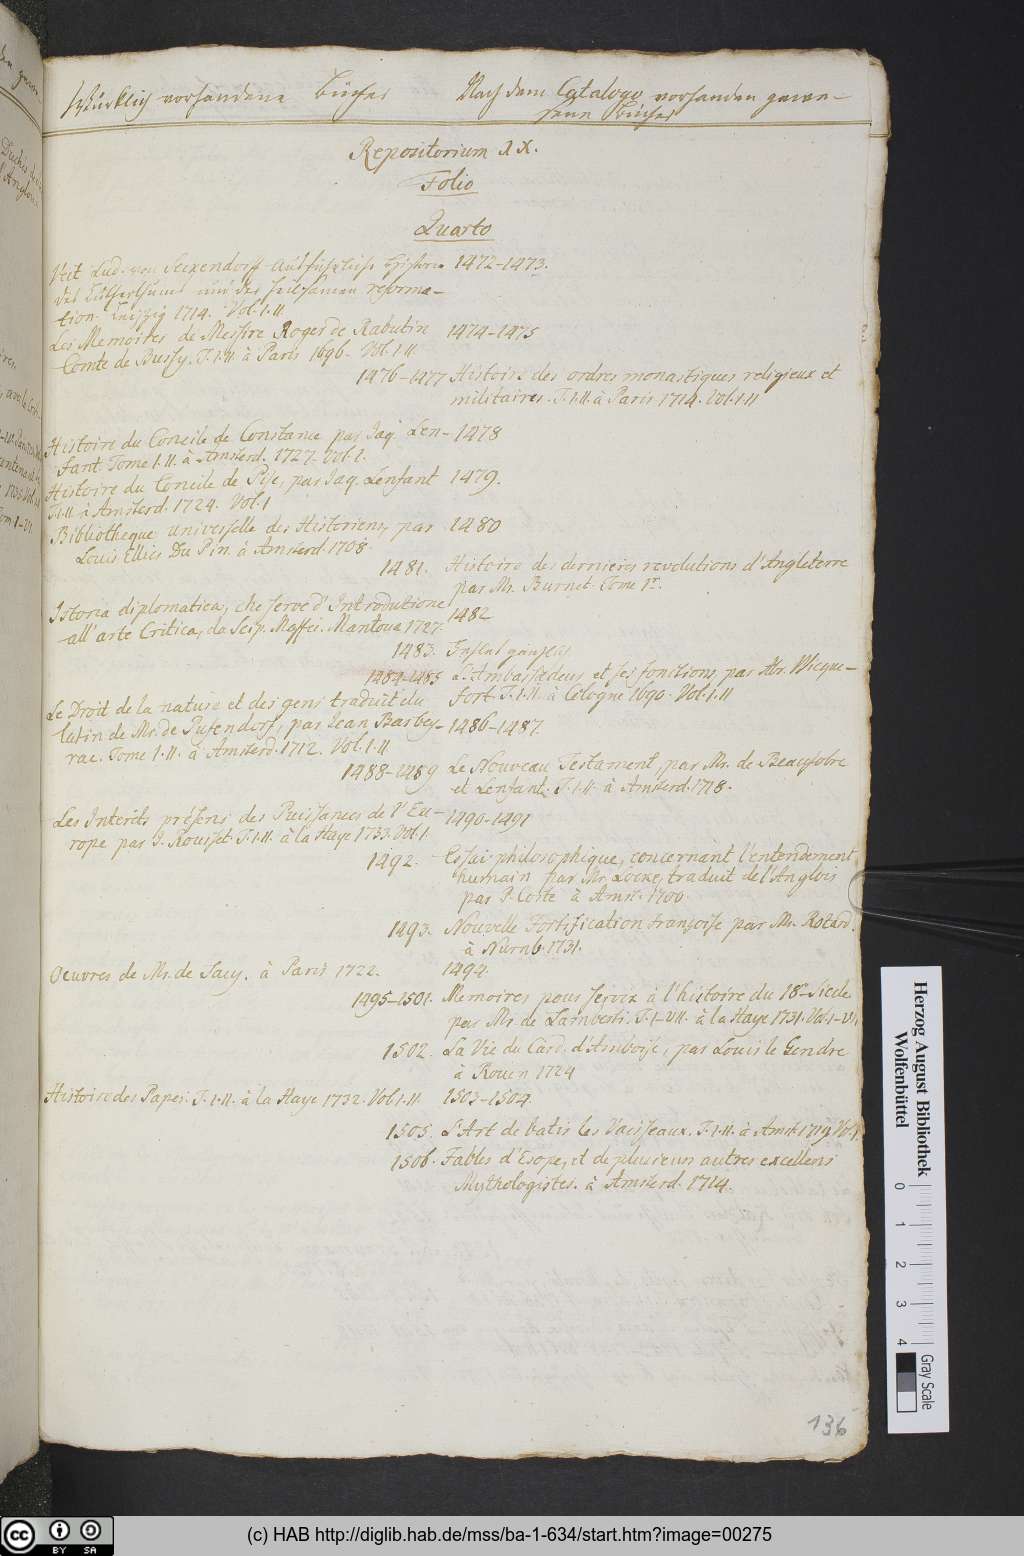 Würcklich vorhandene Bücher
Nach dem Catalogo vorhanden gewe-
sene Bücher
Repositorium IX.
Folio
Quarto
Veit Lud. von Seckendorff Ausführliche Historie 1472-1473.
des Lutherthums und der heilsamen reforma-
tion. Leipzig 1714. Vol. I. II
Les Memoires de Messire Roger de Rabutin 1474-1475
Comte de Bussy. T. I. II. à Paris 1696. Vol. I. II.
1476-1477 Histoire des ordres monastiques religieux et
militaires. T. I. II. à Paris 1714. Vol. I. II
Histoire du Concile de Constance par Jaq. Len- 1478
fant. Tome I. II. à Amsterd. 1727. Vol. I.
Histoire du Concile de Pise, par Jaq. Lénfant 1479.
T. I. II. à Amsterd. 1724. Vol. I
Bibliotheque universelle des Historiens, par 1480
Louis Ellies Du Pin. à Amsterd. 1708.
1481. Histoire des dernieres revolutions d'Angleterre
par Mr. Burnet. Tome 1r.
Istoria diplomatica, che serve d'Introdutione
all'arte Critica, da Scip. Maffei. Mantoua 1727. 1482
1483.
1484-1485 L'Ambassadeur et ses fonctions par Mr. Wicque-
fort. T. I. II. à Cologne 1690. Vol. I. II
Le Droit de la nature et des gens traduit du
latin de Mr. de Pufendorf, par Jean Barbey- 1486-1487.
rac. Tome I. II. à Amsterd. 1712. Vol. I. II
1488-1489 Le Nouveau Testament, par Mr. de Beausobre
et Lenfant. T. I. II. à Amsterd. 1718.
Les Interêts présens des Puissances de l'Eu- 1490-1491
rope par J. Rousset. T. I. II. à la Haye 1733. Vol. I.
1492. Essai philosophique, concernant l'entendement
humain par Mr. Locke, traduit de l'Anglois
par P. Coste à Amst. 1700.
1493. Nouvelle Fortification françoise par Mr. Rotard.
à Nürnb. 1731.
Oeuvres de Mr. de Sacy. à Paris 1722. 1494.
1495-1501. Memoires pour servir à l'histoire du 18e Siecle
par Mr. de Lamberti. T. I-VII. à la Haye 1731. Vol. I-VII.
1502. La Vie du Card. d'Amboise, par Louis le Gendre
à Rouen 1724
Histoire des Papes. T. I. II. à la Haye 1732. Vol. I. II. 1503-1504.
1505. L'Art de batir les Vaisseaux. T. I. II. à Amst. 1719. Vol. I.
1506. Fables d'Esope, et de plusieurs autres excellens
Mythologistes. à Amsterd. 1714.
136
Herzog August Bibliothek
Wolfenbüttel
0 1 2 3 4
Gray Scale
cc BY SA
(c) HAB http://diglib.hab.de/mss/ba-1-634/start.htm?image=00275